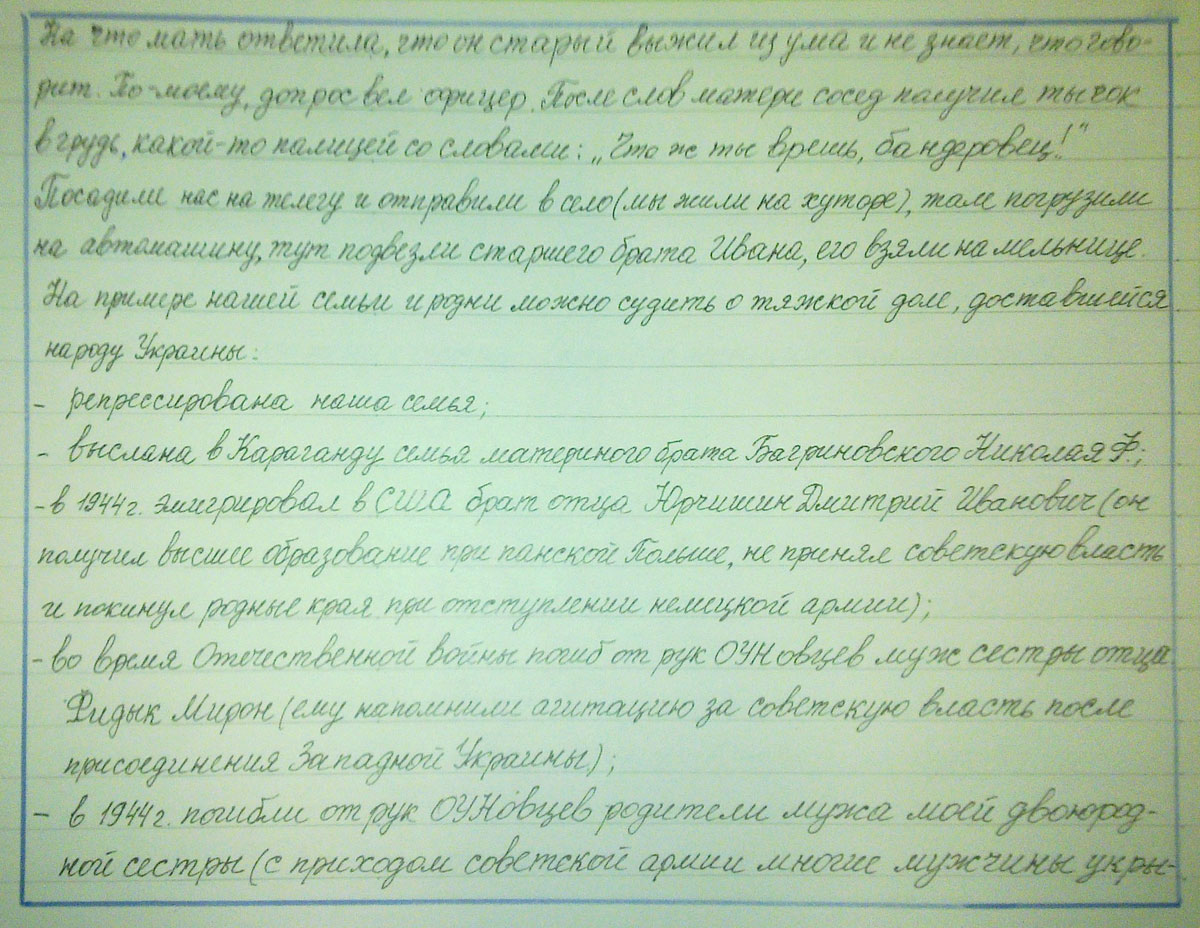 На что мать ответила, что он старый выжил из ума и не знает, что гово-
рит. По-моему, допрос вел офицер. После слов матери сосед получил тычок
в грудь, какой-то палицей со словами: „Что ж ты врешь, бандеровец!"
Посадили нас на телегу и отправили в село (мы жили на хуторе), там погрузили
на автомашину, тут подвезли старшего брата Ивана, его взяли на мельнице.
На примере нашей семьи и родни можно судить о тяжкой доле, доставшейся
народу Украины:
- репрессирована наша семья;
- выслана в Караганду семья материного брата Багриновского Николая Ф.;
- в 1944 г. эмигрировал в США брат отца Юрчишин Дмитрий Иванович (он
получил высшее образование при панской Польше, не принял советскую власть
и покинул родные края при отступлении немецкой армии);
- во время Отечественной войны погиб от рук ОУНовцев муж сестры отца
Фидык Мирон (ему напомнили агитацию за советскую власть после
присоединения Западной Украины);
- в 1944 г. погибли от рук ОУНовцев родители мужа моей двоюрод-
ной сестры (с приходом советской армии многие мужчины укры-